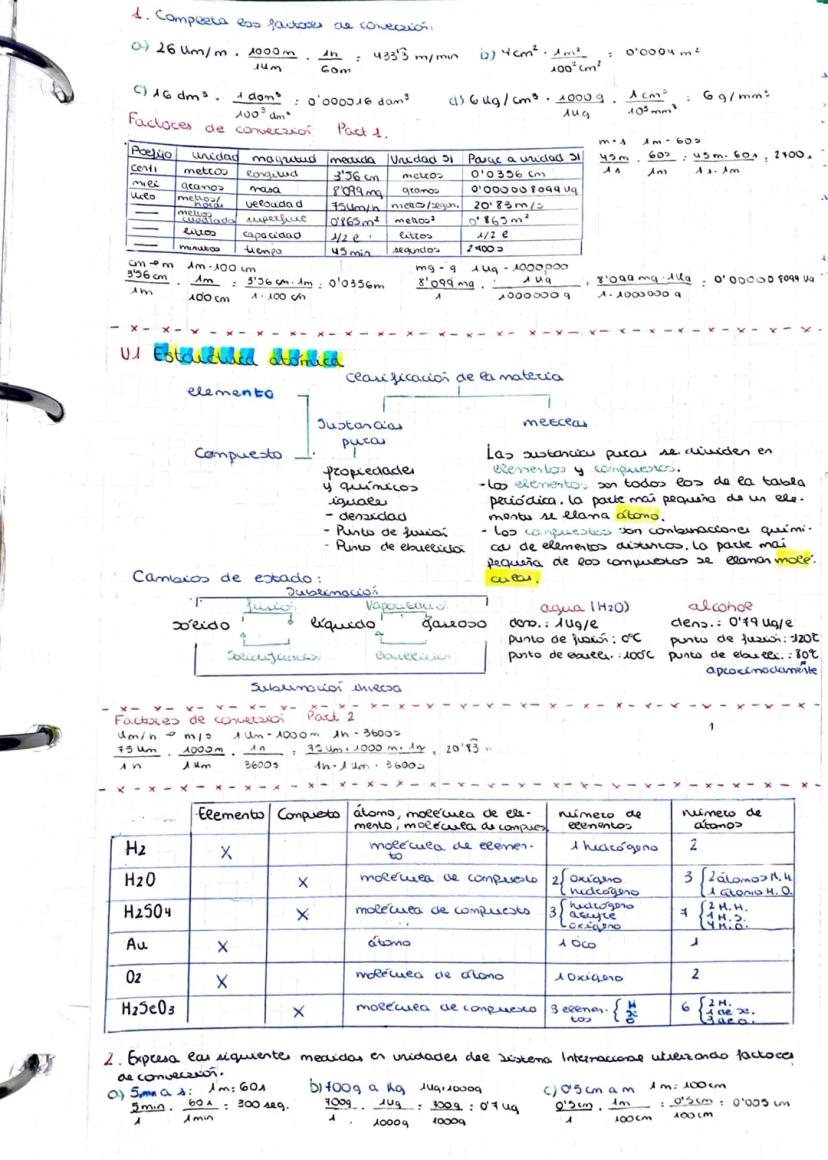 1. Completa los factores de conversión:
a) 26 km/m · 1000m/1km · 1h/60m = 433'3 m/min b) 4cm² · 1m²/100²cm² = 0'0004 m²
c) 16 dm³ · 1 dam³/100³ dm³ = 0'000016 dam³ d) 6 kg/cm³ · 1000g/1kg · 1cm³/10³mm³ = 6 g/mm³
Factores de conversión Part 1.
Prefijo unidad magnitud medida Unidad SI Pasar a unidad SI
centi metros longitud 3'56 cm metros 0'0356 cm
mili gramos masa 8'099mg gramos 0'000008099 kg
kilo metros/horas velocidad 75km/h metros/segun. 20'83 m/s
— metros cuadrado superficie 0'865m² metros² 0'865m²
— litros capacidad 1/2 l litros 1/2 l
— minutos tiempo 45 min segundos 2700 s
m-s 1m-60s
45m/1s · 60s/1m = 45m·60s/1s·1m = 2700s
cm → m 1m-100 cm
3'56cm/1m · 1m/100cm = 3'56cm·1m/1·100cm = 0'0356m
mg - g 1kg - 1000000
8'099mg/1 · 1kg/1000000g = 8'099mg·1kg/1·1000000g = 0'000008099 kg
U.1 Estructura atómica
Clasificación de la materia
elemento
Compuesto
Sustancias
puras
mezclas
propiedades
y químicos
iguales
- densidad
- Punto de fusión
- Punto de ebullición
Las sustancias puras se dividen en
elementos y compuestos.
- Los elementos son todos los de la tabla
periódica. La parte más pequeña de un ele-
mento se llama átomo.
- Los compuestos son combinaciones quími-
cas de elementos distintos. La parte más
pequeña de los compuestos se llaman molé-
culas.
Cambios de estado:
Sublimación
fusión Vaporización
sólido líquido gaseoso
Solidificación
Sublimación inversa
agua (H2O)
dens.: 1kg/l
punto de fusión: 0ºC
punto de ebulli.: 100ºC
alcohol
dens.: 0'79 kg/l
punto de fusión: -120ºC
punto de ebulli.: 80ºC
aproximadamente
Factores de conversión Part 2
km/h → m/s 1km-1000m 1h-3600s
75km/1h · 1000m/1km · 1h/3600s = 75km·1000m·1h/1h·1km·3600s = 20'83
Elemento Compuesto átomo, molécula de ele-
mento, molécula de compues. número de elementos número de átomos
H2 X molécula de elemen-
to 1 hidrógeno 2
H2O X molécula de compuesto 2 { oxígeno hidrógeno 3 { 2 átomos H. H 1 átomo H. O.
H2SO4 X molécula de compuesto 3 { hidrógeno azufre oxígeno 7 { 2 H. H. 1 H. S. 4 H. O.
Au X átomo 1 oro 1
O2 X molécula de átomo 1 oxígeno 2
H2SeO3 X molécula de compuesto 3 elemen-
tos { H Se O 6 { 2 H. 1 de Se. 3 de O.
2. Expresa las siguientes medidas en unidades del Sistema Internacional utilizando factores
de conversión.
a) 5mn a s: 1m = 60s b) 700g a kg 1kg = 1000g c) 0'5 cm a m 1m = 100cm
5min/1 · 60s/1min = 300 seg. 700g/1 · 1kg/1000g = 700g/1000g = 0'7 kg 0'5cm/1 · 1m/100cm = 0'5cm/100cm = 0'005 cm